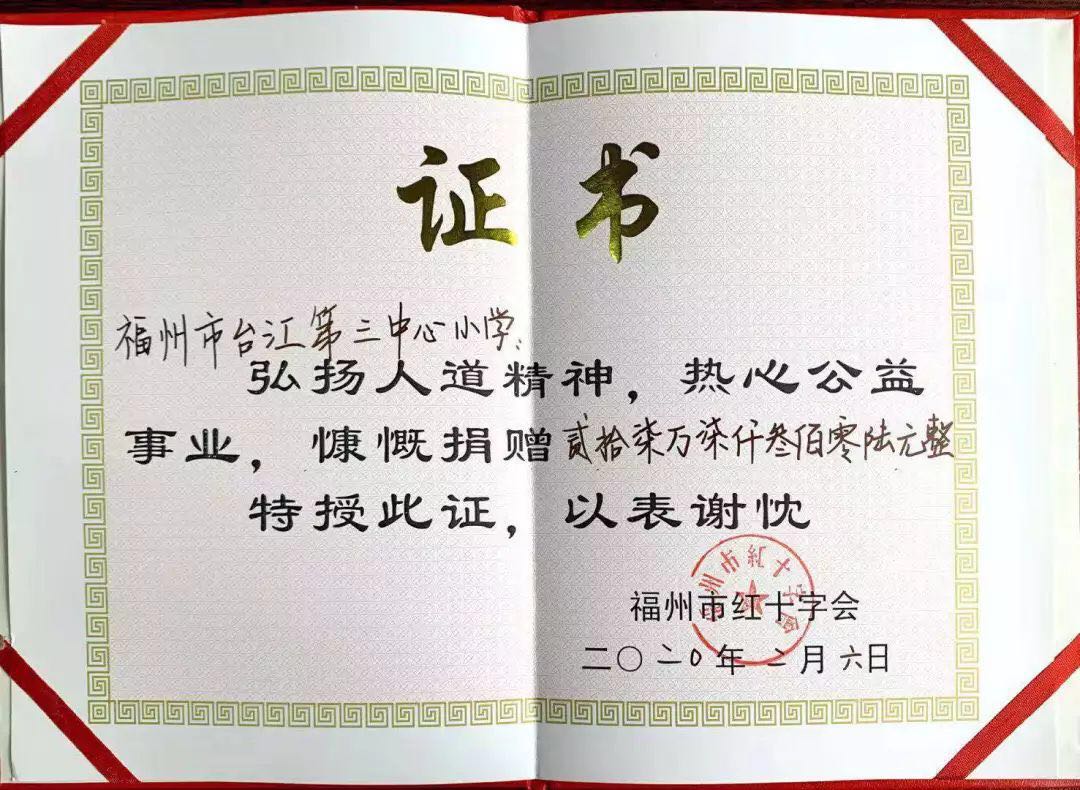 证书
福州市台江第三中心小学:
弘扬人道精神，热心公益
事业，慷慨捐赠贰拾柒万柒仟叁佰零陆元整
特授此证，以表谢忱
福州市红十字会
福州市红十字会
二〇二0年二月六日